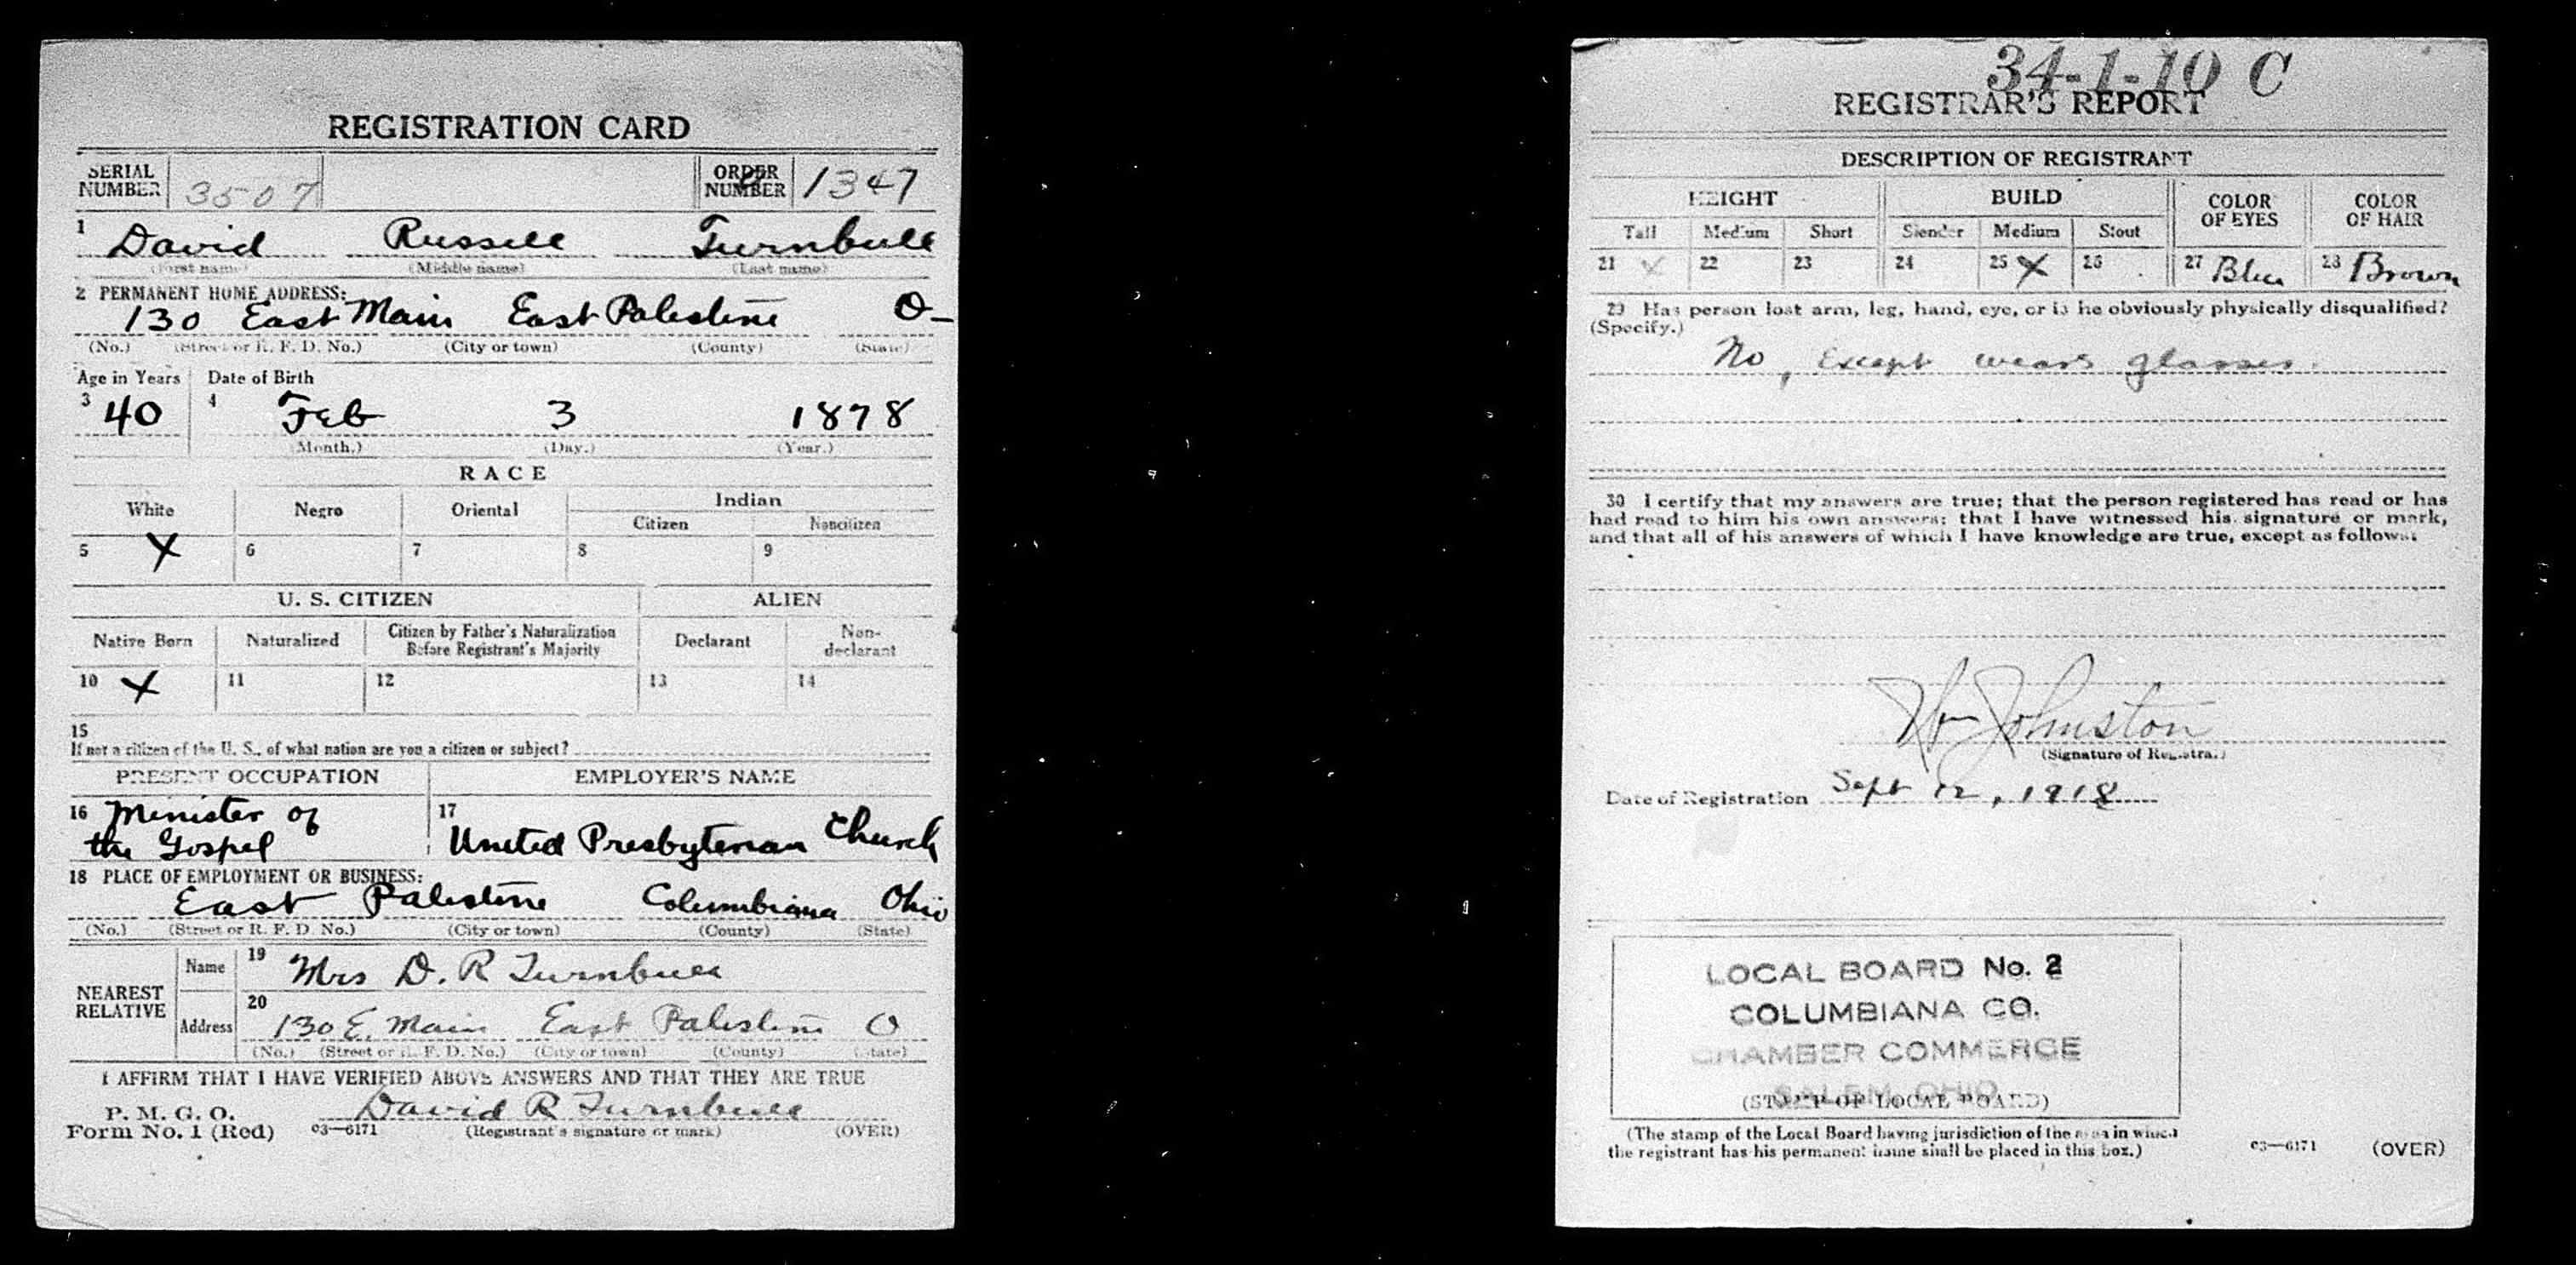 REGISTRATION CARD
SERIAL NUMBER 3507 ORDER NUMBER 1347
1 David Russell Turnbull
(First name) (Middle name) (Last name)
2 PERMANENT HOME ADDRESS:
130 East Main East Palestine O-
(No.) (Street or R. F. D. No.) (City or town) (County) (State)
Age in Years Date of Birth
3 40 4 Feb 3 1878
(Month.) (Day.) (Year.)
RACE
White Negro Oriental Indian
Citizen Noncitizen
5 X 6 7 8 9
U. S. CITIZEN ALIEN
Native Born Naturalized Citizen by Father's Naturalization Before Registrant's Majority Declarant Non-declarant
10 X 11 12 13 14
15
If not a citizen of the U. S., of what nation are you a citizen or subject?
PRESENT OCCUPATION EMPLOYER'S NAME
16 Minister of the Gospel 17 United Presbyterian Church
18 PLACE OF EMPLOYMENT OR BUSINESS:
East Palestine Columbiana Ohio
(No.) (Street or R. F. D. No.) (City or town) (County) (State)
NEAREST RELATIVE Name 19 Mrs D. R Turnbull
Address 20 130 E. Main East Palestine O
(No.) (Street or R. F. D. No.) (City or town) (County) (State)
I AFFIRM THAT I HAVE VERIFIED ABOVE ANSWERS AND THAT THEY ARE TRUE
P. M. G. O. David R Turnbull
Form No. 1 (Red) c3—6171 (Registrant's signature or mark) (OVER)
34-1-10 C
REGISTRAR'S REPORT
DESCRIPTION OF REGISTRANT
HEIGHT BUILD COLOR OF EYES COLOR OF HAIR
Tall Medium Short Slender Medium Stout
21 X 22 23 24 25 X 26 27 Blue 28 Brown
29 Has person lost arm, leg, hand, eye, or is he obviously physically disqualified?
(Specify.)
No, Except wears glasses.
30 I certify that my answers are true; that the person registered has read or has
had read to him his own answers; that I have witnessed his signature or mark,
and that all of his answers of which I have knowledge are true, except as follows:
Wm Johnston
(Signature of Registrar.)
Date of Registration Sept 12, 1918
LOCAL BOARD No. 2
COLUMBIANA CO.
CHAMBER COMMERCE
SALEM, OHIO
(STAMP OF LOCAL BOARD)
(The stamp of the Local Board having jurisdiction of the area in which
the registrant has his permanent home shall be placed in this box.)
c3—6171 (OVER)